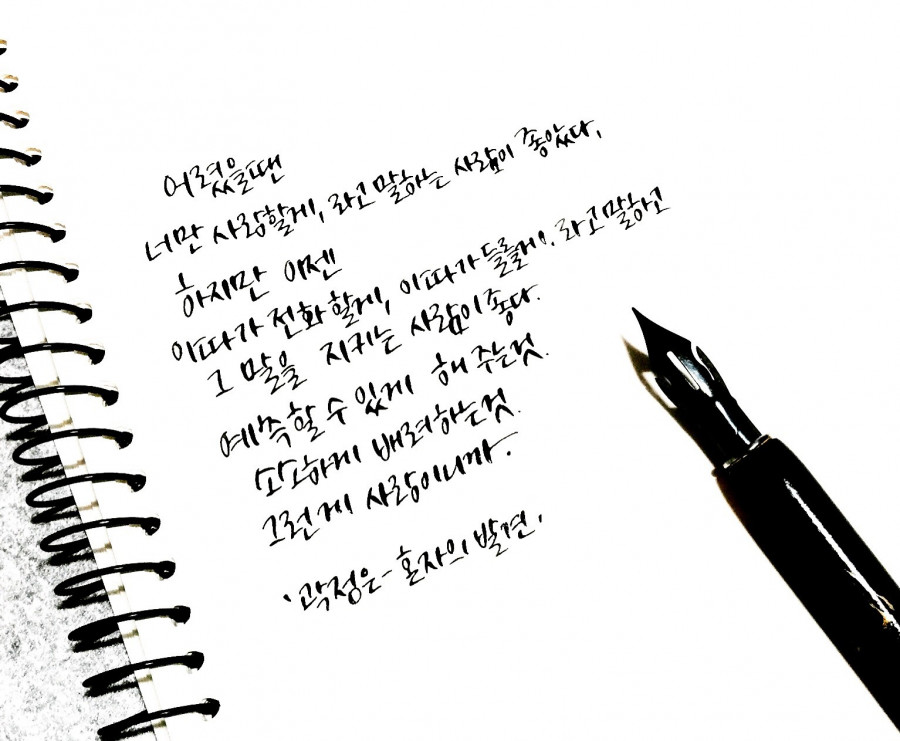 어렸을땐
너만 사랑할게, 라고 말하는 사람이 좋았다,
하지만 이젠
이따가 전화할게, 이따가 들를게. 라고 말하고
그 말을 지키는 사람이 좋다.
예측할 수 있게 해 주는것.
소소하게 배려하는것.
그런게 사랑이니까.
'곽정은 - 혼자의 발견,